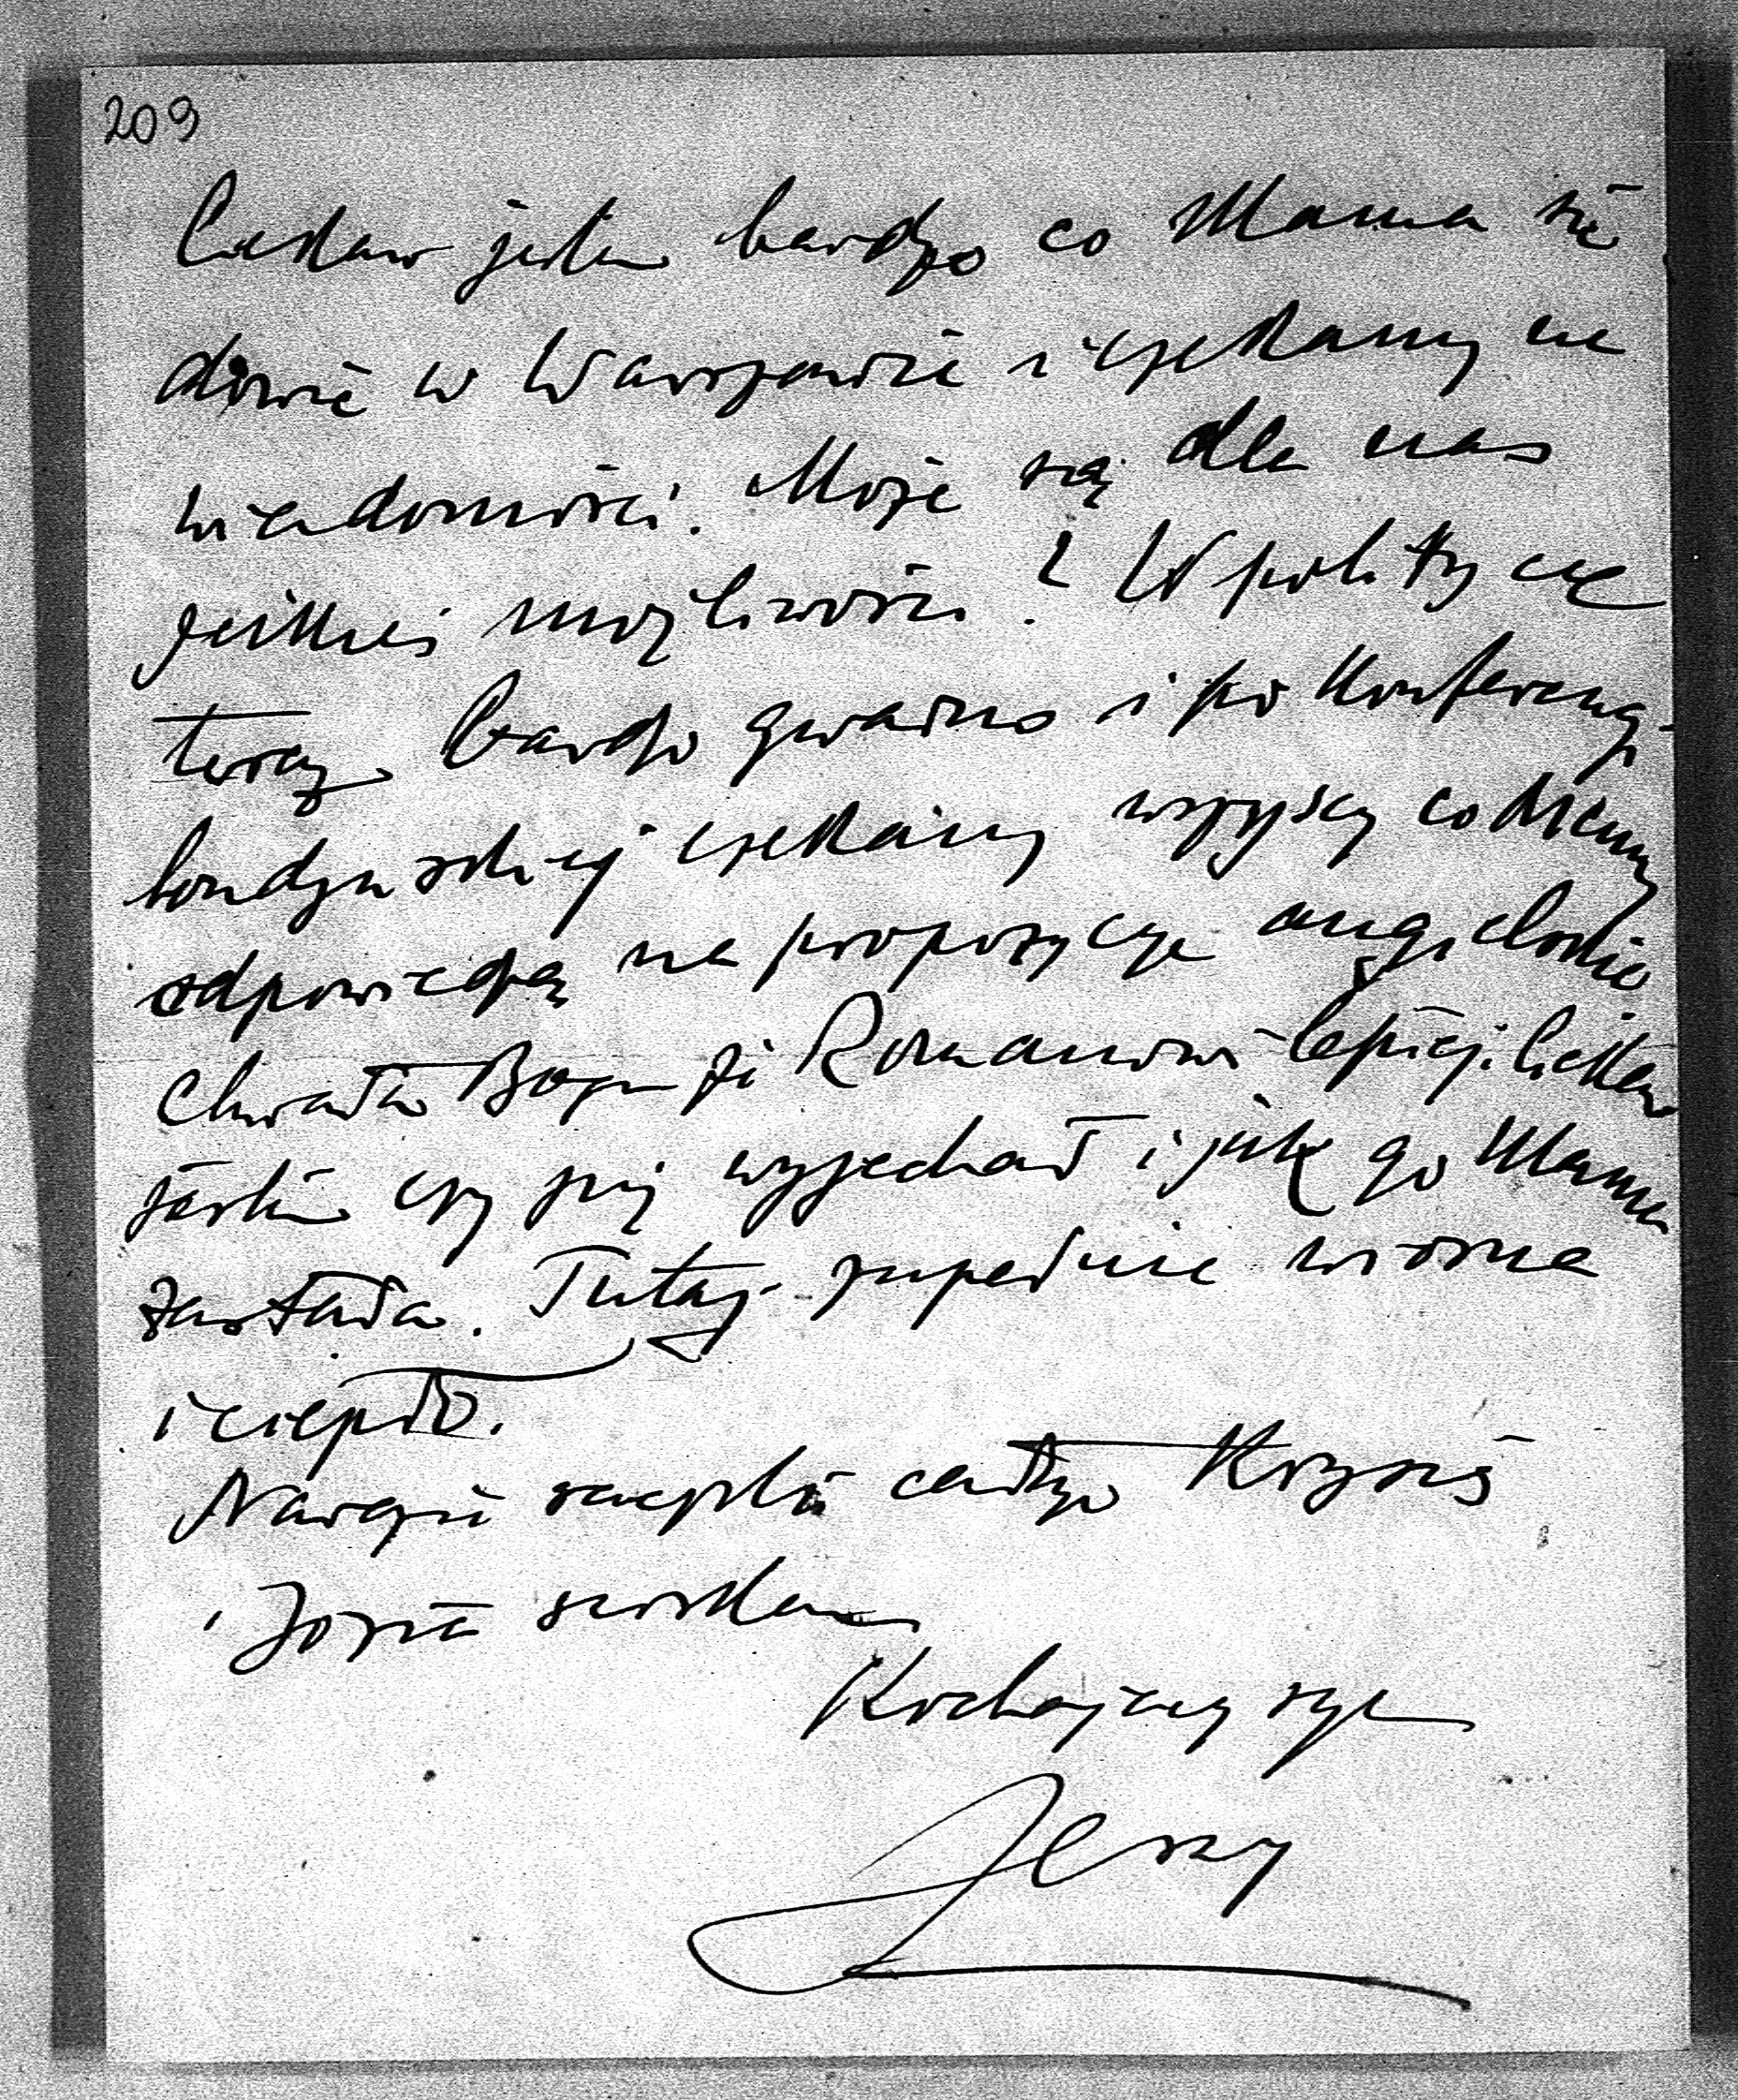 209
Ciekaw jestem bardzo co Mama się
dowie w Warszawie i czekamy na
wiadomości. Może są dla nas
jakieś możliwości? W polityce
teraz bardzo gwarno i po konferencji
londyńskiej czekamy wszyscy co Niemcy
odpowiedzą na propozycje angielskie
Chwała Bogu że Romanowi lepiej. Ciekaw
jestem czy już wyjechał i jak go Mama
zastała. Tutaj zupełnie wiosna
i ciepło.
Narazie rączki całuję Krzysię
i Józia ściskam
Kochający syn
Jerzy